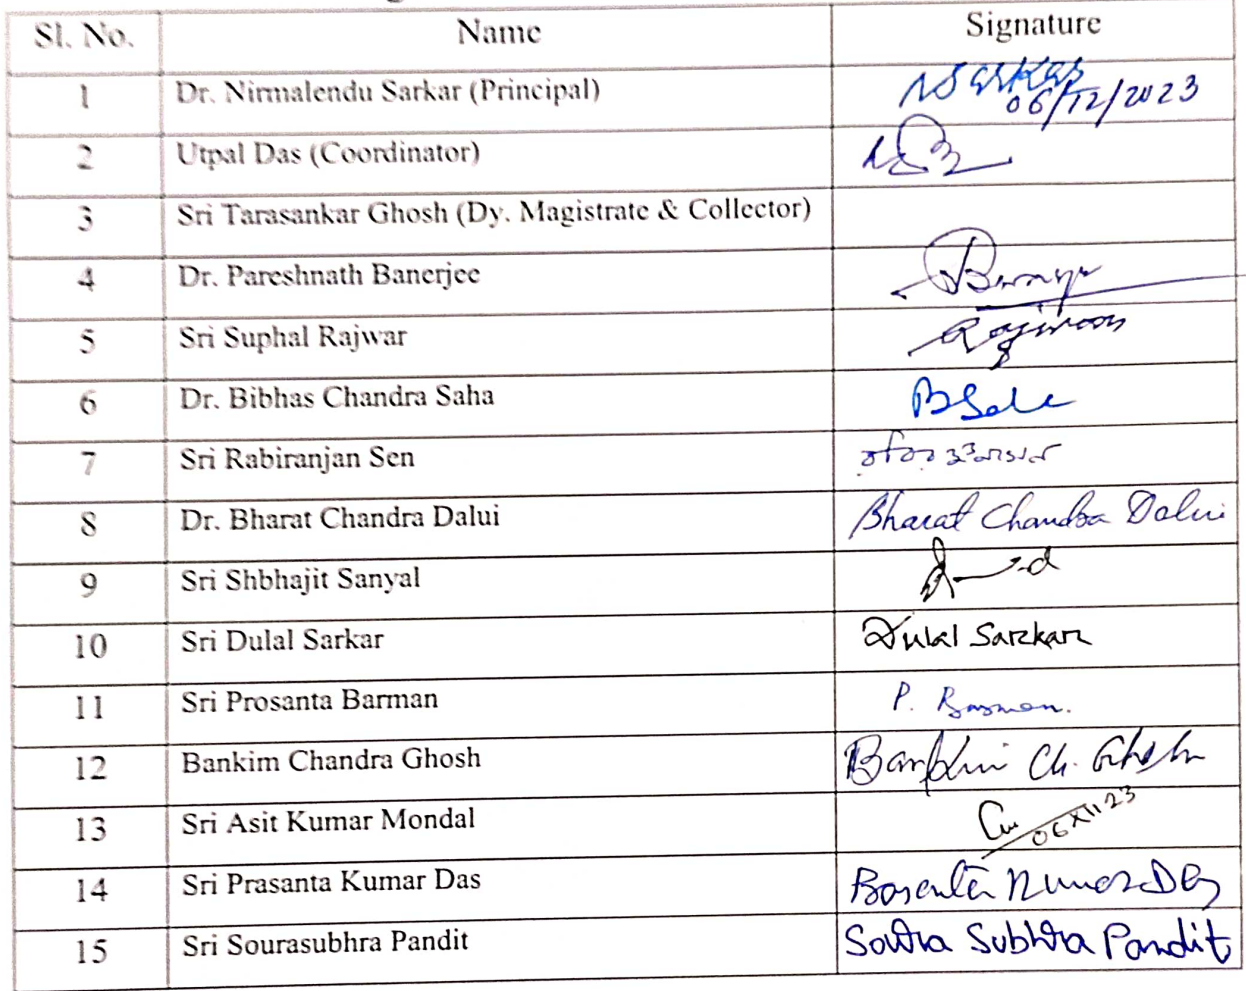 Sl. No. Name Signature
1 Dr. Nirmalendu Sarkar (Principal) NSarkar
06/12/2023
2 Utpal Das (Coordinator)
3 Sri Tarasankar Ghosh (Dy. Magistrate & Collector)
4 Dr. Pareshnath Banerjee
5 Sri Suphal Rajwar Rajwar
6 Dr. Bibhas Chandra Saha BSaha
7 Sri Rabiranjan Sen
8 Dr. Bharat Chandra Dalui Bharat Chandra Dalui
9 Sri Shbhajit Sanyal
10 Sri Dulal Sarkar Dulal Sarkar
11 Sri Prosanta Barman P. Barman.
12 Bankim Chandra Ghosh Bankim Ch. Ghosh
13 Sri Asit Kumar Mondal
14 Sri Prasanta Kumar Das
15 Sri Sourasubhra Pandit Soura Subhra Pandit